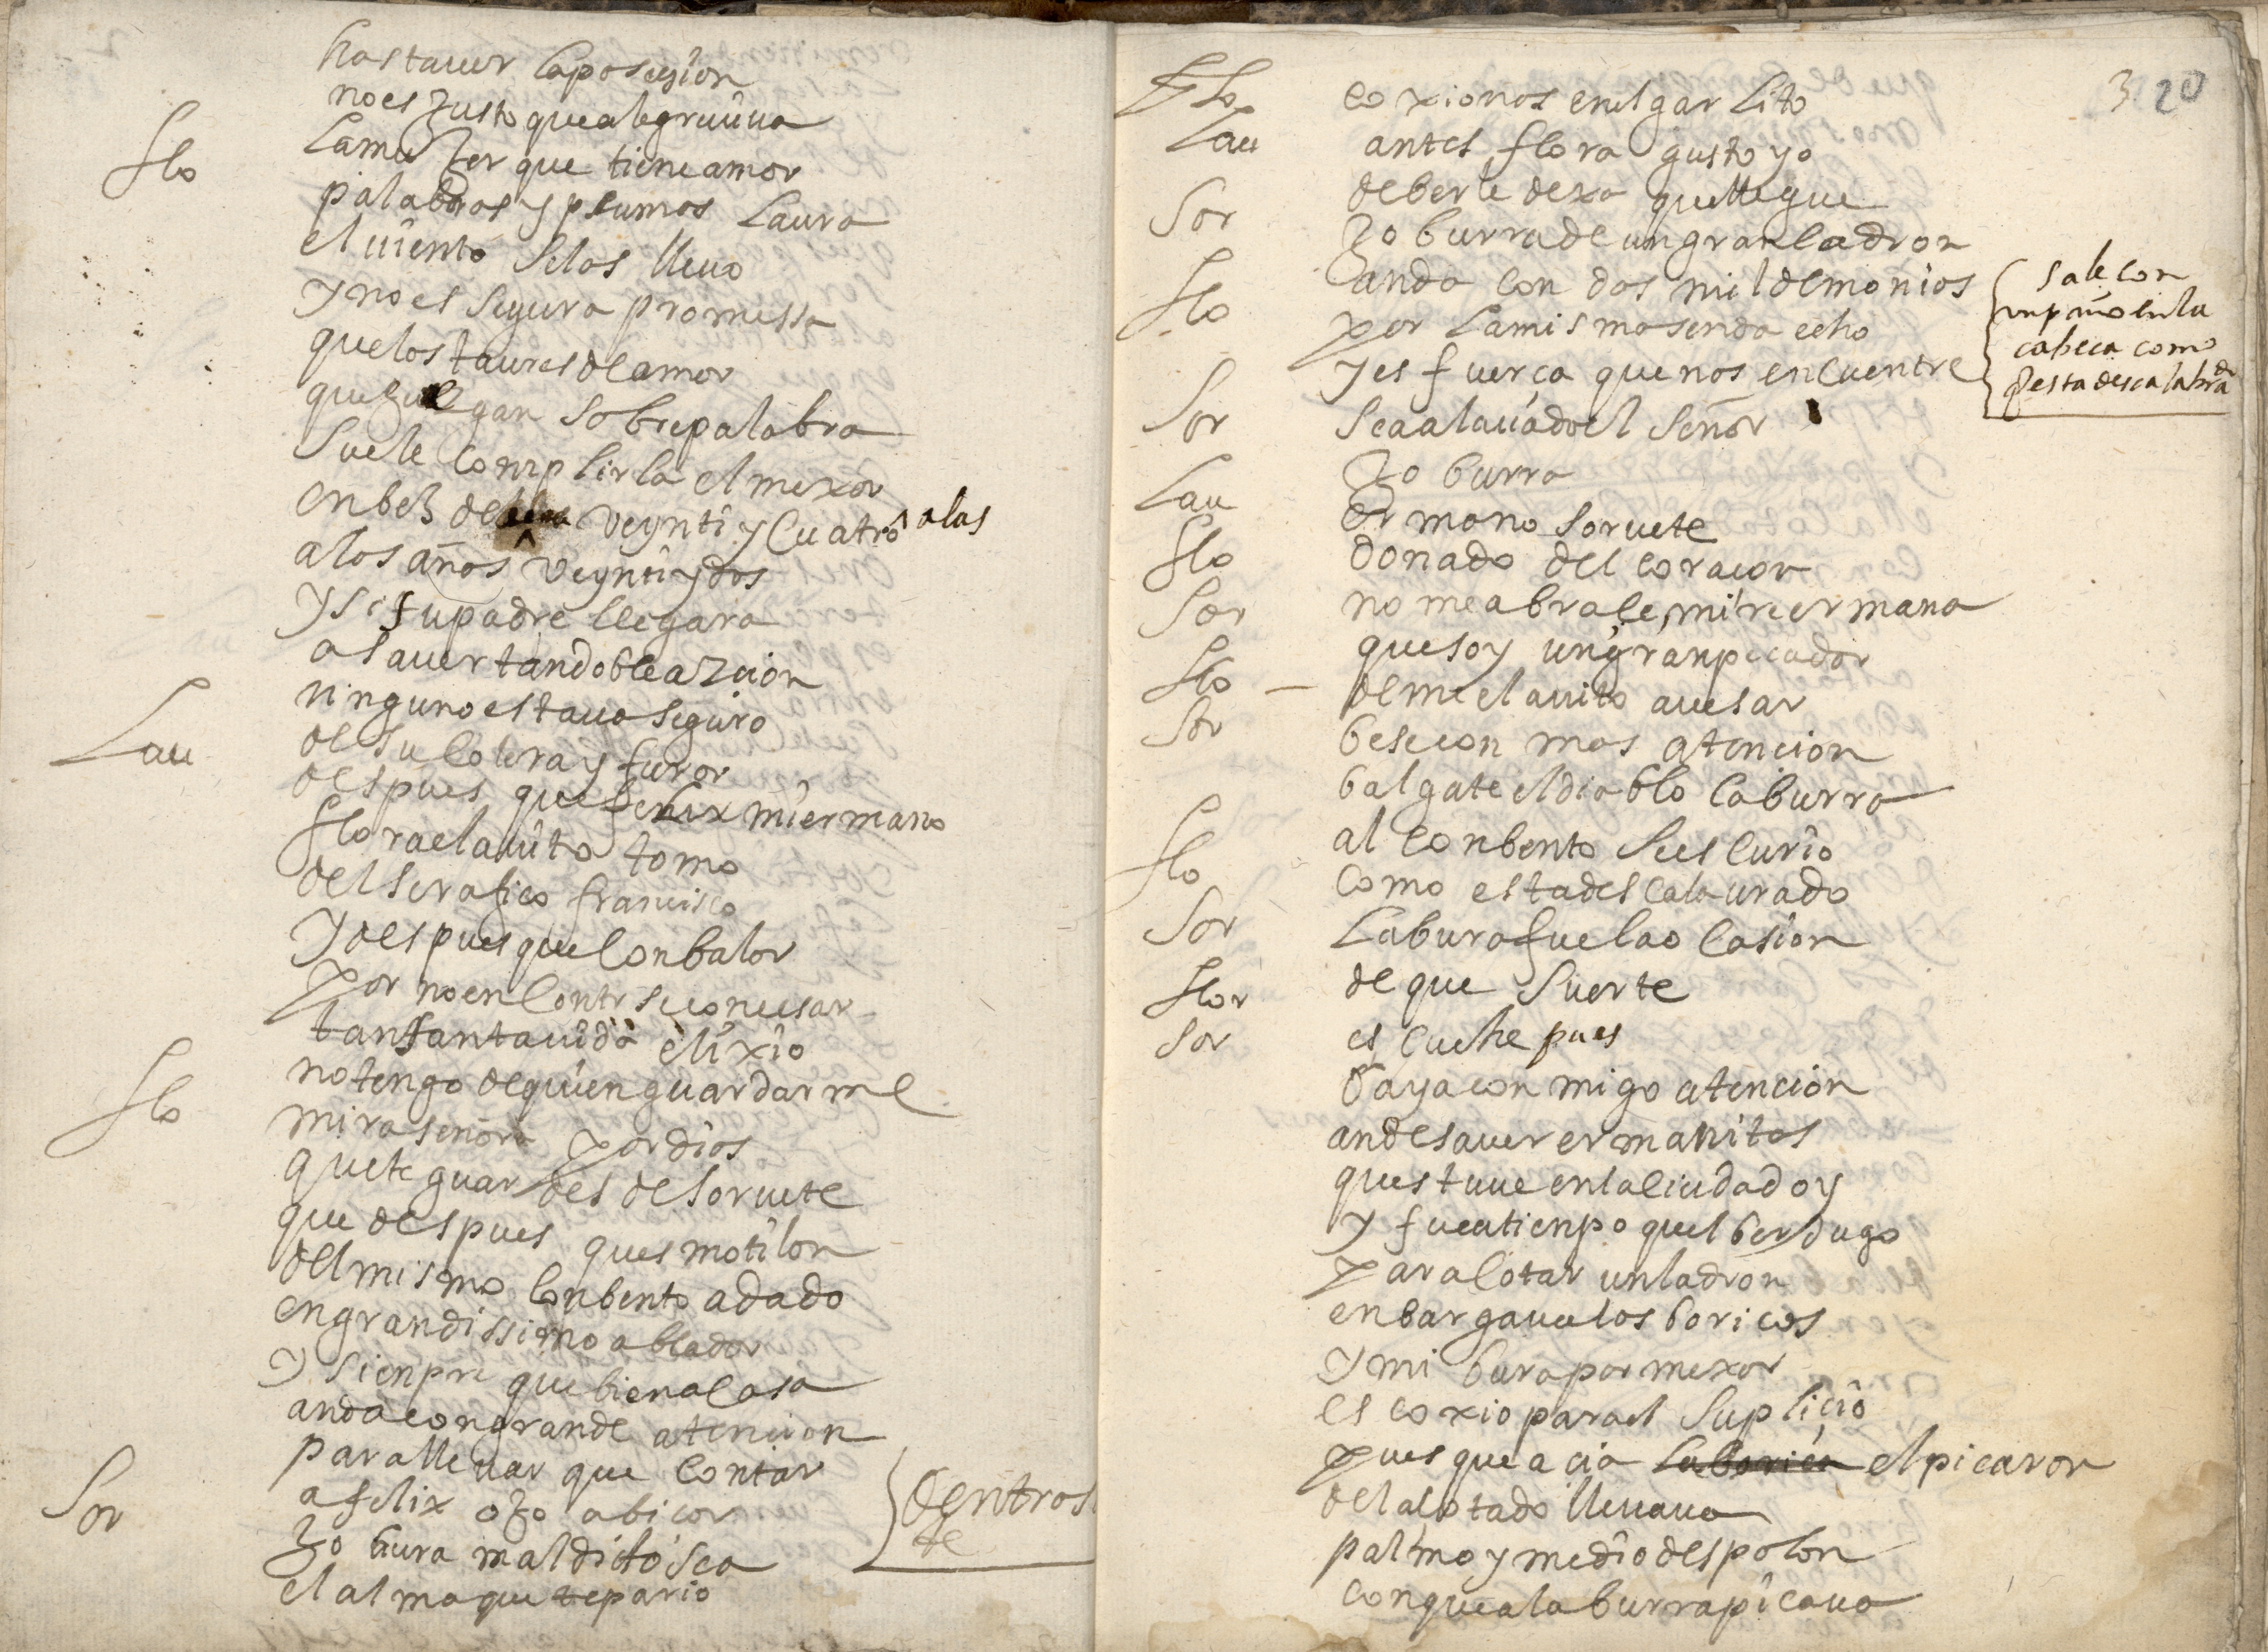 hastauer laposesion
noes Justo quealegreuiua
flo lamuJer que tieneamor
palabras y plumas Laura
el uiento Selas lleua
y noes Segura promessa
quelos taures de amor
queJuegan Sobrepalabra
Suele Complirla elmexor
enbeZ de veynti y Cuatro alas
alos años veyntiydos
y si supadre llegara
asauer tandobleaZcion
ninguno estaua Seguro
de su Colera y furor
Lau despues que felix miermano
flora elauito tomo
del Serafico francisco
y despues que Conbalor
por no en Contr
tansantauida elixio
notengo dequien guardarme
flo mira señora por dios
quete guardes de Soruete
que despues ques motilon
delmismo Conbento adado
engrandissimo ablador
y sienpre que biena Casa
anda congrande atencion
parallevar que Contar
a felix oJo abicor
Sor Jo bura maldito Sea {dentros
de
el alma que te pario
3 20
flo coxionos enel garlito
Lau antes flora gusto yo
deberle dexa quellegue
Sor Jo burra de ungranladron
anda con dos mil demonios
flo por lamisma senda echo
y es fuerca quenos enCuentre
{sale con
un paño en la
cabeca como
q esta descalabrado
Sor Seaalauadoel Señor
Jo burra
Lau ermano Soruete
flo donado del coracon
Sor no meabrace, mire ermana
quesoy ungranpecador
flo deme elauito auesar
Sor besecon mas atencion
balgate eldiablo laburra
al Conbento Sees Curio
flo Como estadesCalaurado
Sor Laburafuelao Casion
flor de que Suerte
Sor es cuche pues
baya con migo atencion
andesauer ermanitas
questuue enlaciudad oy
y fueatienpo quel berdugo
paracotar unladron
enbargaualos boricos
y mi bura por mexor
es coxio parael Suplicio
pues que acia la borica el picaron
delacotado lleuaua
palmo y medio despolon
conquealaburrapicaua